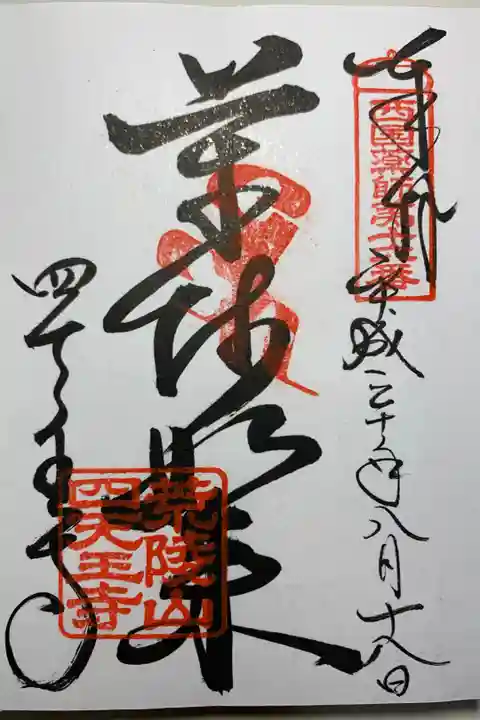 奉拝 平成三十年八月十八日
西国薬師第十六番
薬師如来
四天王寺
荒陵山
四天王寺